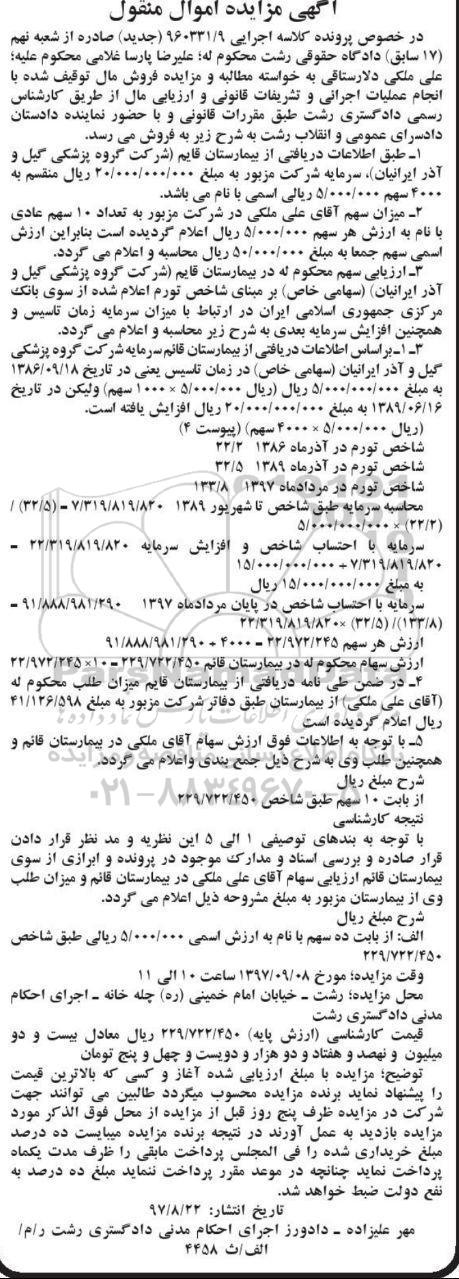 آگهی مزایده اموال منقول
در خصوص پرونده کلاسه اجرایی ۹۶۰۳۳۱/۹ (جدید) صادره از شعبه نهم
(۱۷ سابق) دادگاه حقوقی رشت محکوم له؛ علیرضا پارسا غلامی محکوم علیه؛
علی ملکی دلارستاقی به خواسته مطالبه و مزایده فروش مال توقیف شده با
انجام عملیات اجرائی و تشریفات قانونی و ارزیابی مال از طریق کارشناس
رسمی دادگستری رشت طبق مقررات قانونی و با حضور نماینده دادستان
دادسرای عمومی و انقلاب رشت به شرح زیر به فروش می رسد.
۱ـ طبق اطلاعات دریافتی از بیمارستان قایم (شرکت گروه پزشکی گیل و
آذر ایرانیان)، سرمایه شرکت مزبور به مبلغ ۲۰/۰۰۰/۰۰۰/۰۰۰ ریال منقسم به
۴۰۰۰ سهم ۵/۰۰۰/۰۰۰ ریالی اسمی با نام می باشد.
۲ـ میزان سهم آقای علی ملکی در شرکت مزبور به تعداد ۱۰ سهم عادی
با نام به ارزش هر سهم ۵/۰۰۰/۰۰۰ ریال اعلام گردیده است بنابراین ارزش
اسمی سهم جمعا به مبلغ ۵۰/۰۰۰/۰۰۰ ریال محاسبه و اعلام می گردد.
۳ـ ارزیابی سهم محکوم له در بیمارستان قایم (شرکت گروه پزشکی گیل و
آذر ایرانیان) (سهامی خاص) بر مبنای شاخص تورم اعلام شده از سوی بانک
مرکزی جمهوری اسلامی ایران در ارتباط با میزان سرمایه زمان تاسیس و
همچنین افزایش سرمایه بعدی به شرح زیر محاسبه و اعلام می گردد.
۳ـ۱ـ براساس اطلاعات دریافتی از بیمارستان قائم سرمایه شرکت گروه پزشکی
گیل و آذر ایرانیان (سهامی خاص) در زمان تاسیس یعنی در تاریخ ۱۳۸۶/۰۹/۱۸
به مبلغ ۵/۰۰۰/۰۰۰/۰۰۰ ریال (ریال ۵/۰۰۰/۰۰۰ × ۱۰۰۰ سهم) ولیکن در تاریخ
۱۳۸۹/۰۶/۱۶ به مبلغ ۲۰/۰۰۰/۰۰۰/۰۰۰ ریال افزایش یافته است.
(ریال ۵/۰۰۰/۰۰۰ × ۴۰۰۰ سهم) (پیوست ۴)
شاخص تورم در آذرماه ۱۳۸۶ ۲۲/۲
شاخص تورم در آذرماه ۱۳۸۹ ۳۲/۵
شاخص تورم در مردادماه ۱۳۹۷ ۱۳۳/۸
محاسبه سرمایه طبق شاخص تا شهریور ۱۳۸۹ ۷/۳۱۹/۸۱۹/۸۲۰ = (۳۲/۵) /
(۲۲/۲) × ۵/۰۰۰/۰۰۰/۰۰۰
سرمایه با احتساب شاخص و افزایش سرمایه ۲۲/۳۱۹/۸۱۹/۸۲۰ =
۷/۳۱۹/۸۱۹/۸۲۰ + ۱۵/۰۰۰/۰۰۰/۰۰۰
به مبلغ ۱۵/۰۰۰/۰۰۰/۰۰۰ ریال
سرمایه با احتساب شاخص در پایان مردادماه ۱۳۹۷ ۹۱/۸۸۸/۹۸۱/۲۹۰ =
(۱۳۳/۸)/ (۳۲/۵) ×۲۲/۳۱۹/۸۱۹/۸۲۰
ارزش هر سهم ۲۲/۹۷۲/۲۴۵ = ۴۰۰۰ ÷ ۹۱/۸۸۸/۹۸۱/۲۹۰
ارزش سهام محکوم له در بیمارستان قائم ۲۲۹/۷۲۲/۴۵۰ = ۱۰× ۲۲/۹۷۲/۲۴۵
۴ـ در ضمن طی نامه دریافتی از بیمارستان قایم میزان طلب محکوم له
(آقای علی ملکی) از بیمارستان طبق دفاتر شرکت مزبور به مبلغ ۴۱/۱۲۶/۵۹۸
ریال اعلام گردیده است
۵ـ با توجه به اطلاعات فوق ارزش سهام آقای ملکی در بیمارستان قائم و
همچنین طلب وی به شرح ذیل جمع بندی واعلام می گردد.
شرح مبلغ ریال
از بابت ۱۰ سهم طبق شاخص ۲۲۹/۷۲۲/۴۵۰
۰۲۱-۸۸۳۴۹۶۷۰-۵
نتیجه کارشناسی
با توجه به بندهای توصیفی ۱ الی ۵ این نظریه و مد نظر قرار دادن
قرار صادره و بررسی اسناد و مدارک موجود در پرونده و ابرازی از سوی
بیمارستان قائم ارزیابی سهام آقای علی ملکی در بیمارستان قائم و میزان طلب
وی از بیمارستان مزبور به مبلغ مشروحه ذیل اعلام می گردد.
شرح مبلغ ریال
الف: از بابت ده سهم با نام به ارزش اسمی ۵/۰۰۰/۰۰۰ ریالی طبق شاخص
۲۲۹/۷۲۲/۴۵۰
وقت مزایده؛ مورخ ۱۳۹۷/۰۹/۰۸ ساعت ۱۰ الی ۱۱
محل مزایده؛ رشت ـ خیابان امام خمینی (ره) چله خانه ـ اجرای احکام
مدنی دادگستری رشت
قیمت کارشناسی (ارزش پایه) ۲۲۹/۷۲۲/۴۵۰ ریال معادل بیست و دو
میلیون و نهصد و هفتاد و دو هزار و دویست و چهل و پنج تومان
توضیح؛ مزایده با مبلغ ارزیابی شده آغاز و کسی که بالاترین قیمت
را پیشنهاد نماید برنده مزایده محسوب میگردد طالبین می توانند جهت
شرکت در مزایده ظرف پنج روز قبل از مزایده از محل فوق الذکر مورد
مزایده بازدید به عمل آورند در نتیجه برنده مزایده میبایست ده درصد
مبلغ خریداری شده را فی المجلس پرداخت مابقی را ظرف مدت یکماه
پرداخت نماید چنانچه در موعد مقرر پرداخت ننماید مبلغ ده درصد به
نفع دولت ضبط خواهد شد.
تاریخ انتشار: ۹۷/۸/۲۲
مهر علیزاده ـ دادورز اجرای احکام مدنی دادگستری رشت ر/م/
الف/ث ۴۴۵۸